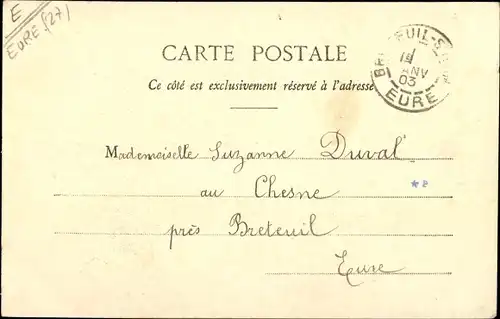 E
EURE (27)
CARTE POSTALE
Ce côté est exclusivement réservé à l'adresse
EURE
03
Mademoiselle Suzanne Duval
au Chesne
près Breteuil
Eure